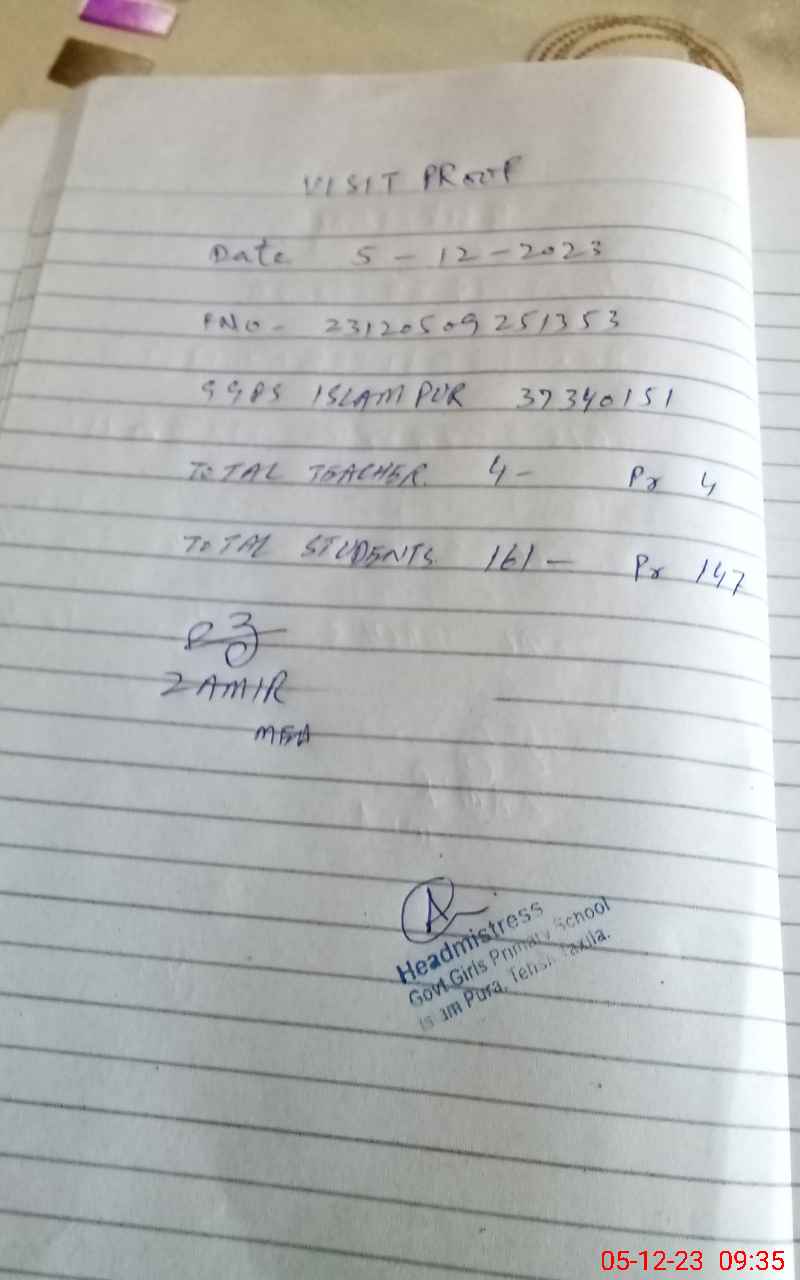 VISIT PROOF
Date 5 - 12 - 2023
PNO - 23120509251353
GGPS ISLAM PUR 37340151
TOTAL TEACHER. 4 - Pr 4
TOTAL STUDENTS 161 - Pr 147
ZAMIR
MEA
Headmistress
Govt Girls Primary School
Islam Pura, Tehsil Taxila.
05-12-23 09:35